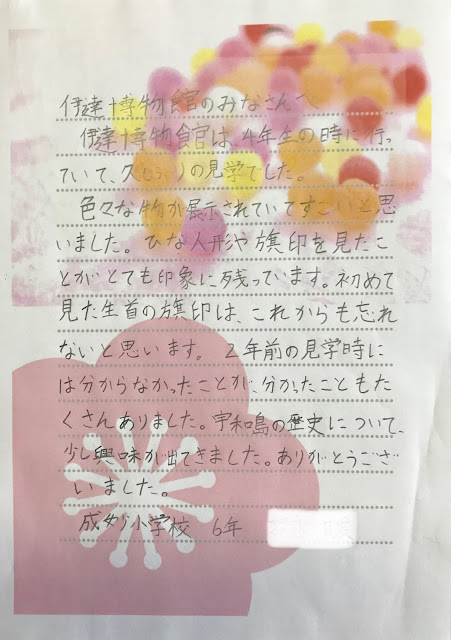 伊達博物館のみなさんへ
伊達博物館は、4年生の時に行っ
ていて、久しぶりの見学でした。
色々な物が展示されていてすごいと思
いました。ひな人形や旗印を見たこ
とがとても印象に残っています。初めて
見た生首の旗印は、これからも忘れ
ないと思います。2年前の見学時に
は分からなかったことが、分かったこともた
くさんありました。宇和島の歴史について、
少し興味が出てきました。ありがとうござ
いました。
成妙小学校 6年